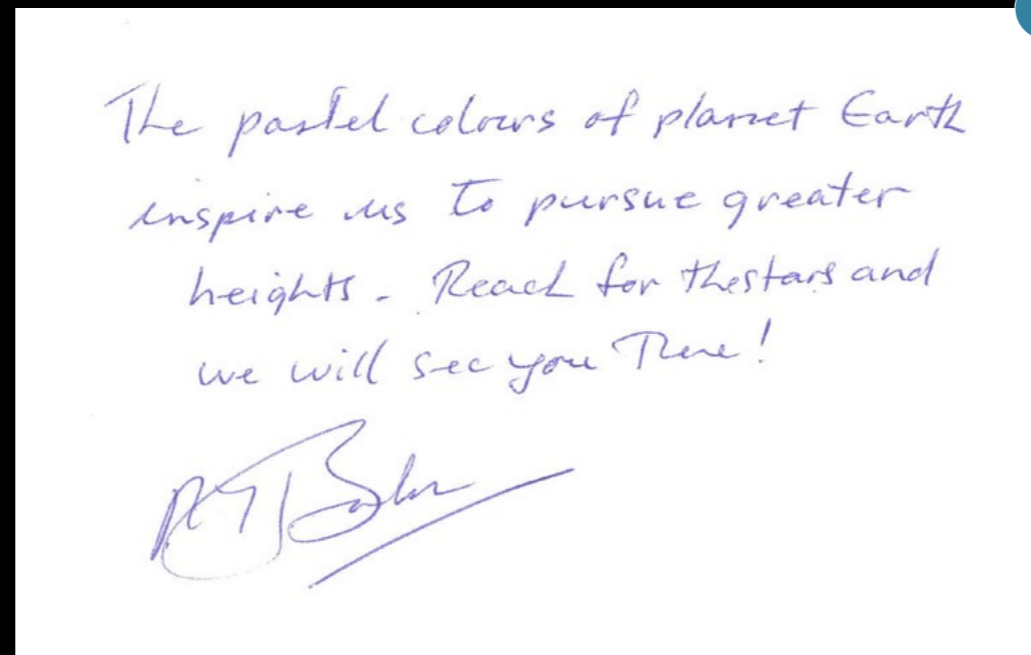 The pastel colours of planet Earth
inspire us to pursue greater
heights. Reach for the stars and
we will see you There!